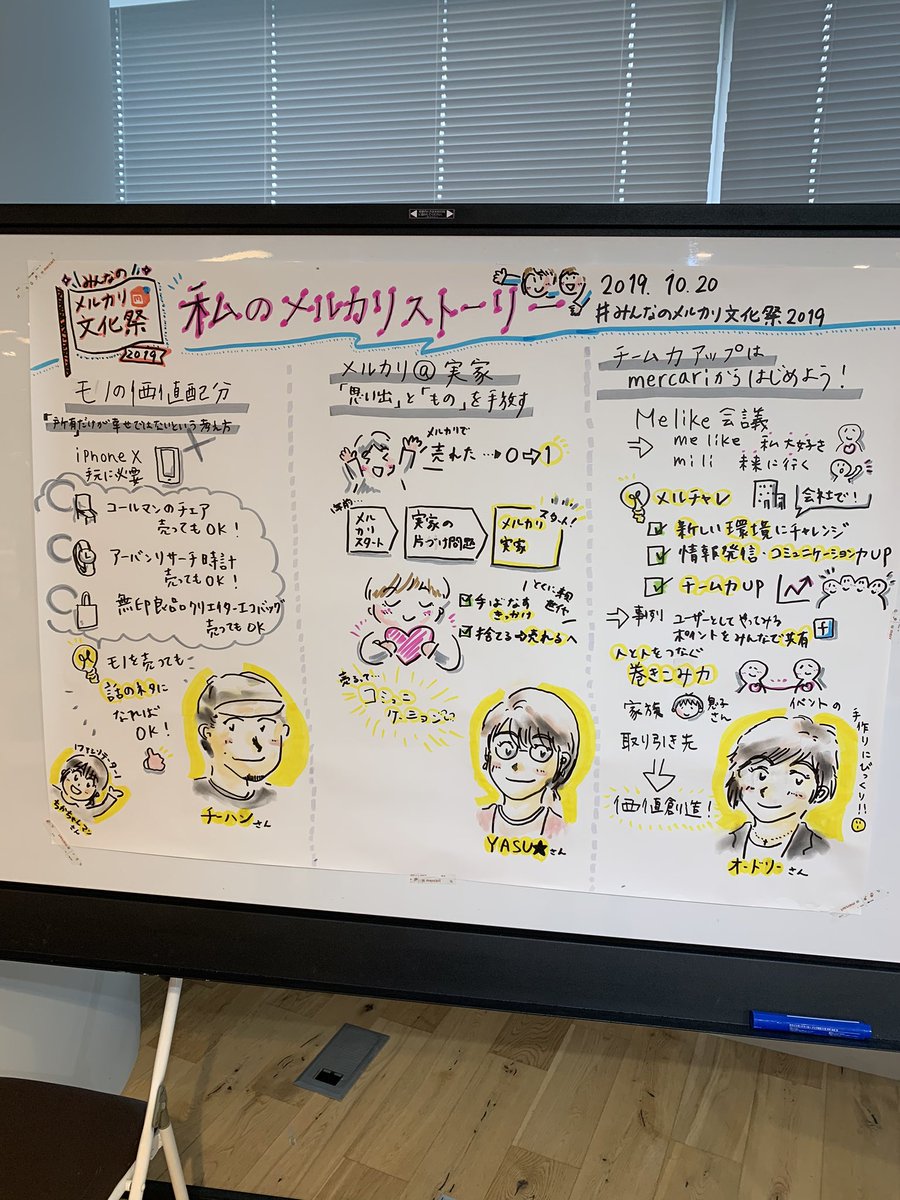 みんなの
メルカリ
文化祭
2019
私のメルカリストーリー
2019.10.20
#みんなのメルカリ文化祭2019
モノの価値配分
「所有」だけが幸せではないという考え方
iPhone X
手元に必要
コールマンのチェア
売ってもOK!
アーバンリサーチ時計
売ってもOK!
無印良品クリエイターエコバッグ
売ってもOK
モノを売っても
話のネタに
なれば
OK!
ファシリテーター!
さん
チーハンさん
メルカリ@実家
「思い出」と「もの」を手放す
メルカリで
売れた…→0⇨1
メルカリスタート
実家の片づけ問題
メルカリ実家
スタート!
とくに親世代
手ばなすきっかけ
捨てる⇨売れるへ
売るって…
コミュニケーション
YASU★さん
チームカアップは
mercariからはじめよう!
Me like 会議
⇨ me like 私大好きを
mili 未来に行く
メルチャレ
会社で!
新しい環境にチャレンジ
情報発信・コミュニケーション力UP
チーム力UP
→事例 ユーザーとしてやってみる
ポイントをみんなで共有
人と人をつなぐ
巻きこみ力
家族 息子さん
取り引き先
価値創造!
イベントの
手作りにびっくり!!
オードリーさん